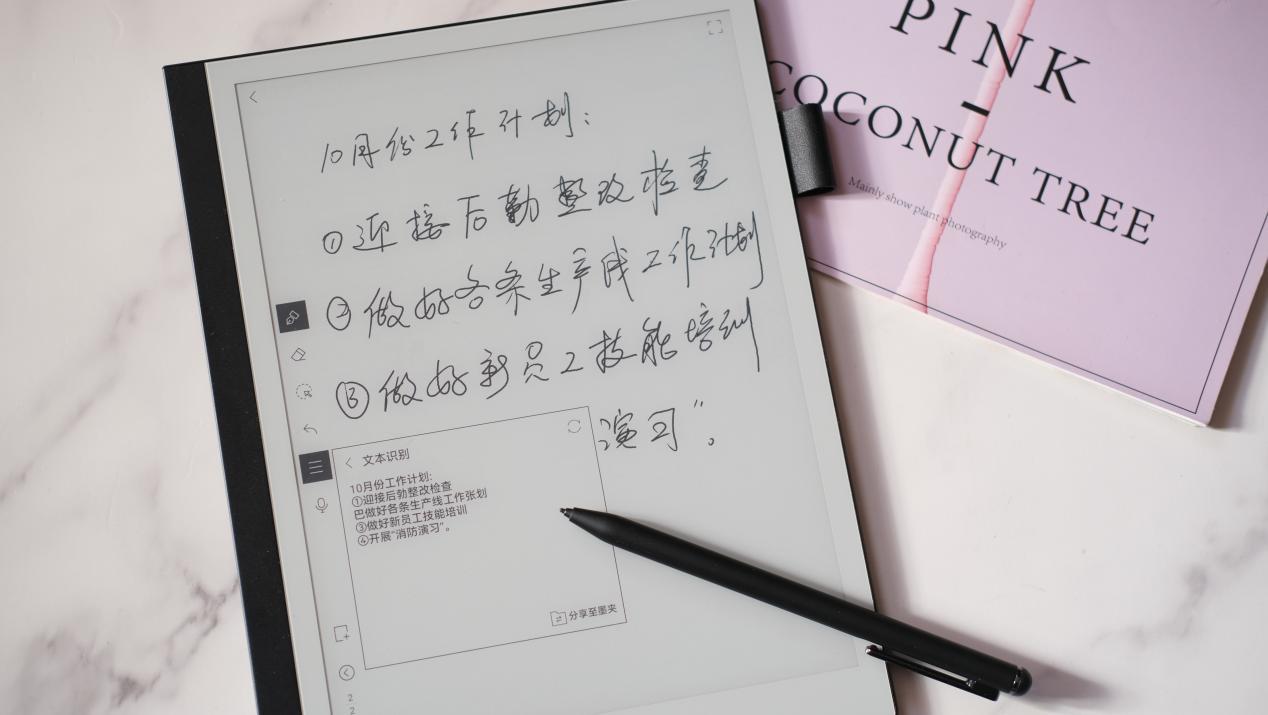 10月份工作计划:
①迎接后勤整改检查
②做好各条生产线工作计划
③做好新员工技能培训
演习”。
文本识别
10月份工作计划:
①迎接后勃整改检查
巴做好各条生产线工作张划
③做好新员工技能培训
④开展“消防演习”。
分享至墨夹
2
2
PINK
COCONUT TREE
Mainly show plant photography